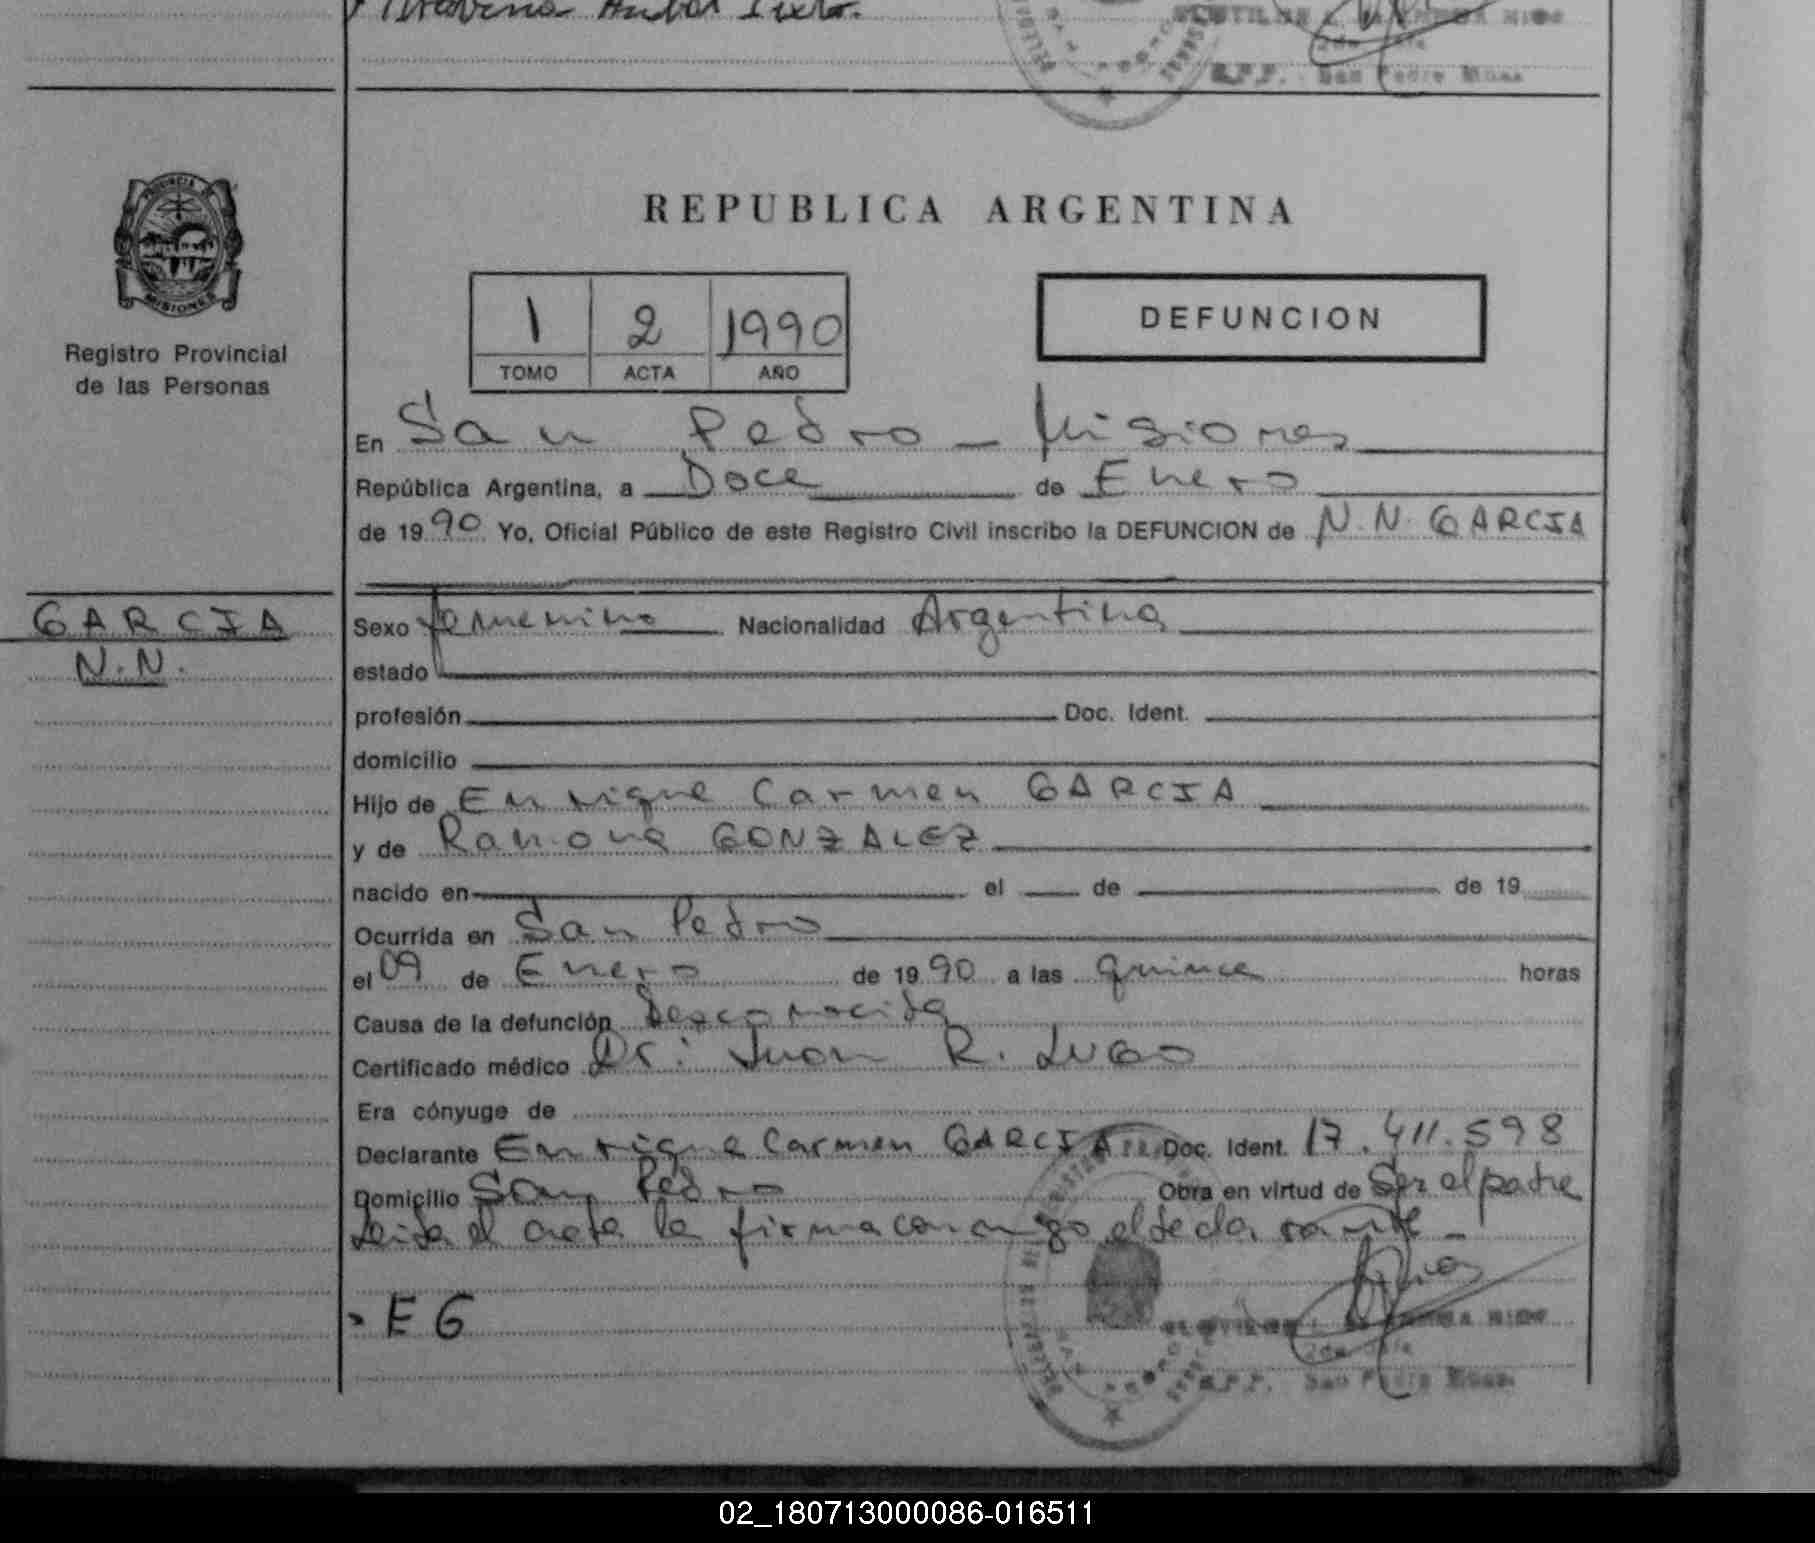 REPUBLICA ARGENTINA
PROVINCIA DE
MISIONES
Registro Provincial
de las Personas
1 2 1990
TOMO ACTA AÑO
DEFUNCION
En San Pedro - Misiones
República Argentina, a Doce de Enero
de 1990 Yo, Oficial Público de este Registro Civil inscribo la DEFUNCION de N.N. GARCIA
GARCIA
N.N.
Sexo femenino Nacionalidad Argentina
estado
profesión Doc. Ident.
domicilio
Hijo de Enrique Carmen GARCIA
y de Ramona GONZALEZ
nacido en el de de 19
Ocurrida en San Pedro
el 09 de Enero de 1990 a las quince horas
Causa de la defunción Desconocida
Certificado médico Dr: Juan R. LUGO
Era cónyuge de
Declarante Enrique Carmen GARCIA Doc. Ident. 17.411.598
Domicilio San Pedro Obra en virtud de Ser el padre
Leida el acta la firma conmigo el declarante -
E G
R.P.P. San Pedro Mnes.
02_180713000086-016511